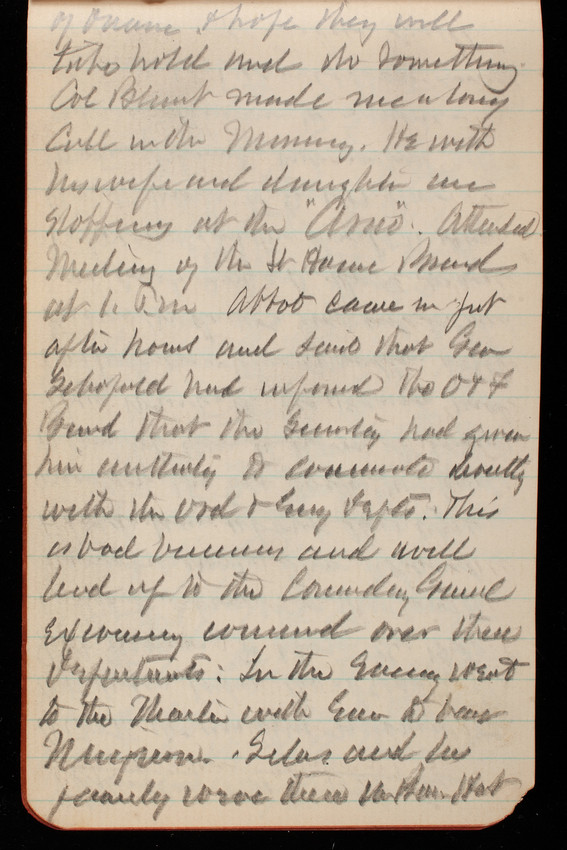 of & hope they will
take hold and do something.
Col Blunt made me a long
call in the Morning. He with
his wife and daughter are
stopping at the "Arno". Attended
Meeting of the St Home Board
at 1. P.m Abbot came in just
after hours and said that Gen
Schofield had informed the O & F
Board that the Secretary had given
him authority to communicate directly
with the Ord & Eng Depts. This
is bad business and will
lead up to the Commdg General
Exercising command over these
Departments. In the Evening went
to the Theater with Gen to hear
. and his
family were there in